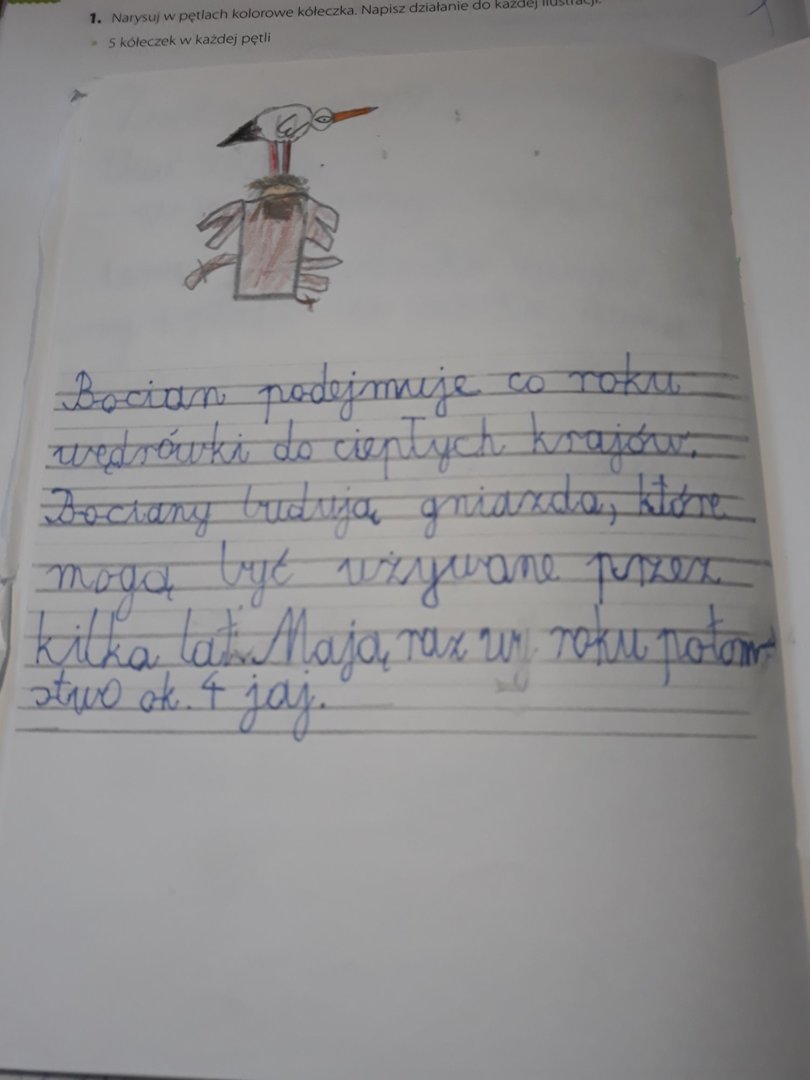 1. Narysuj w pętlach kolorowe kółeczka. Napisz działanie do każdej ilustracji.
5 kółeczek w każdej pętli
Bocian podejmuje co roku
wędrówki do ciepłych krajów.
Bociany budują gniazda, które
mogą być używane przez
kilka lat. Mają raz w roku potom-
stwo ok. 4 jaj.